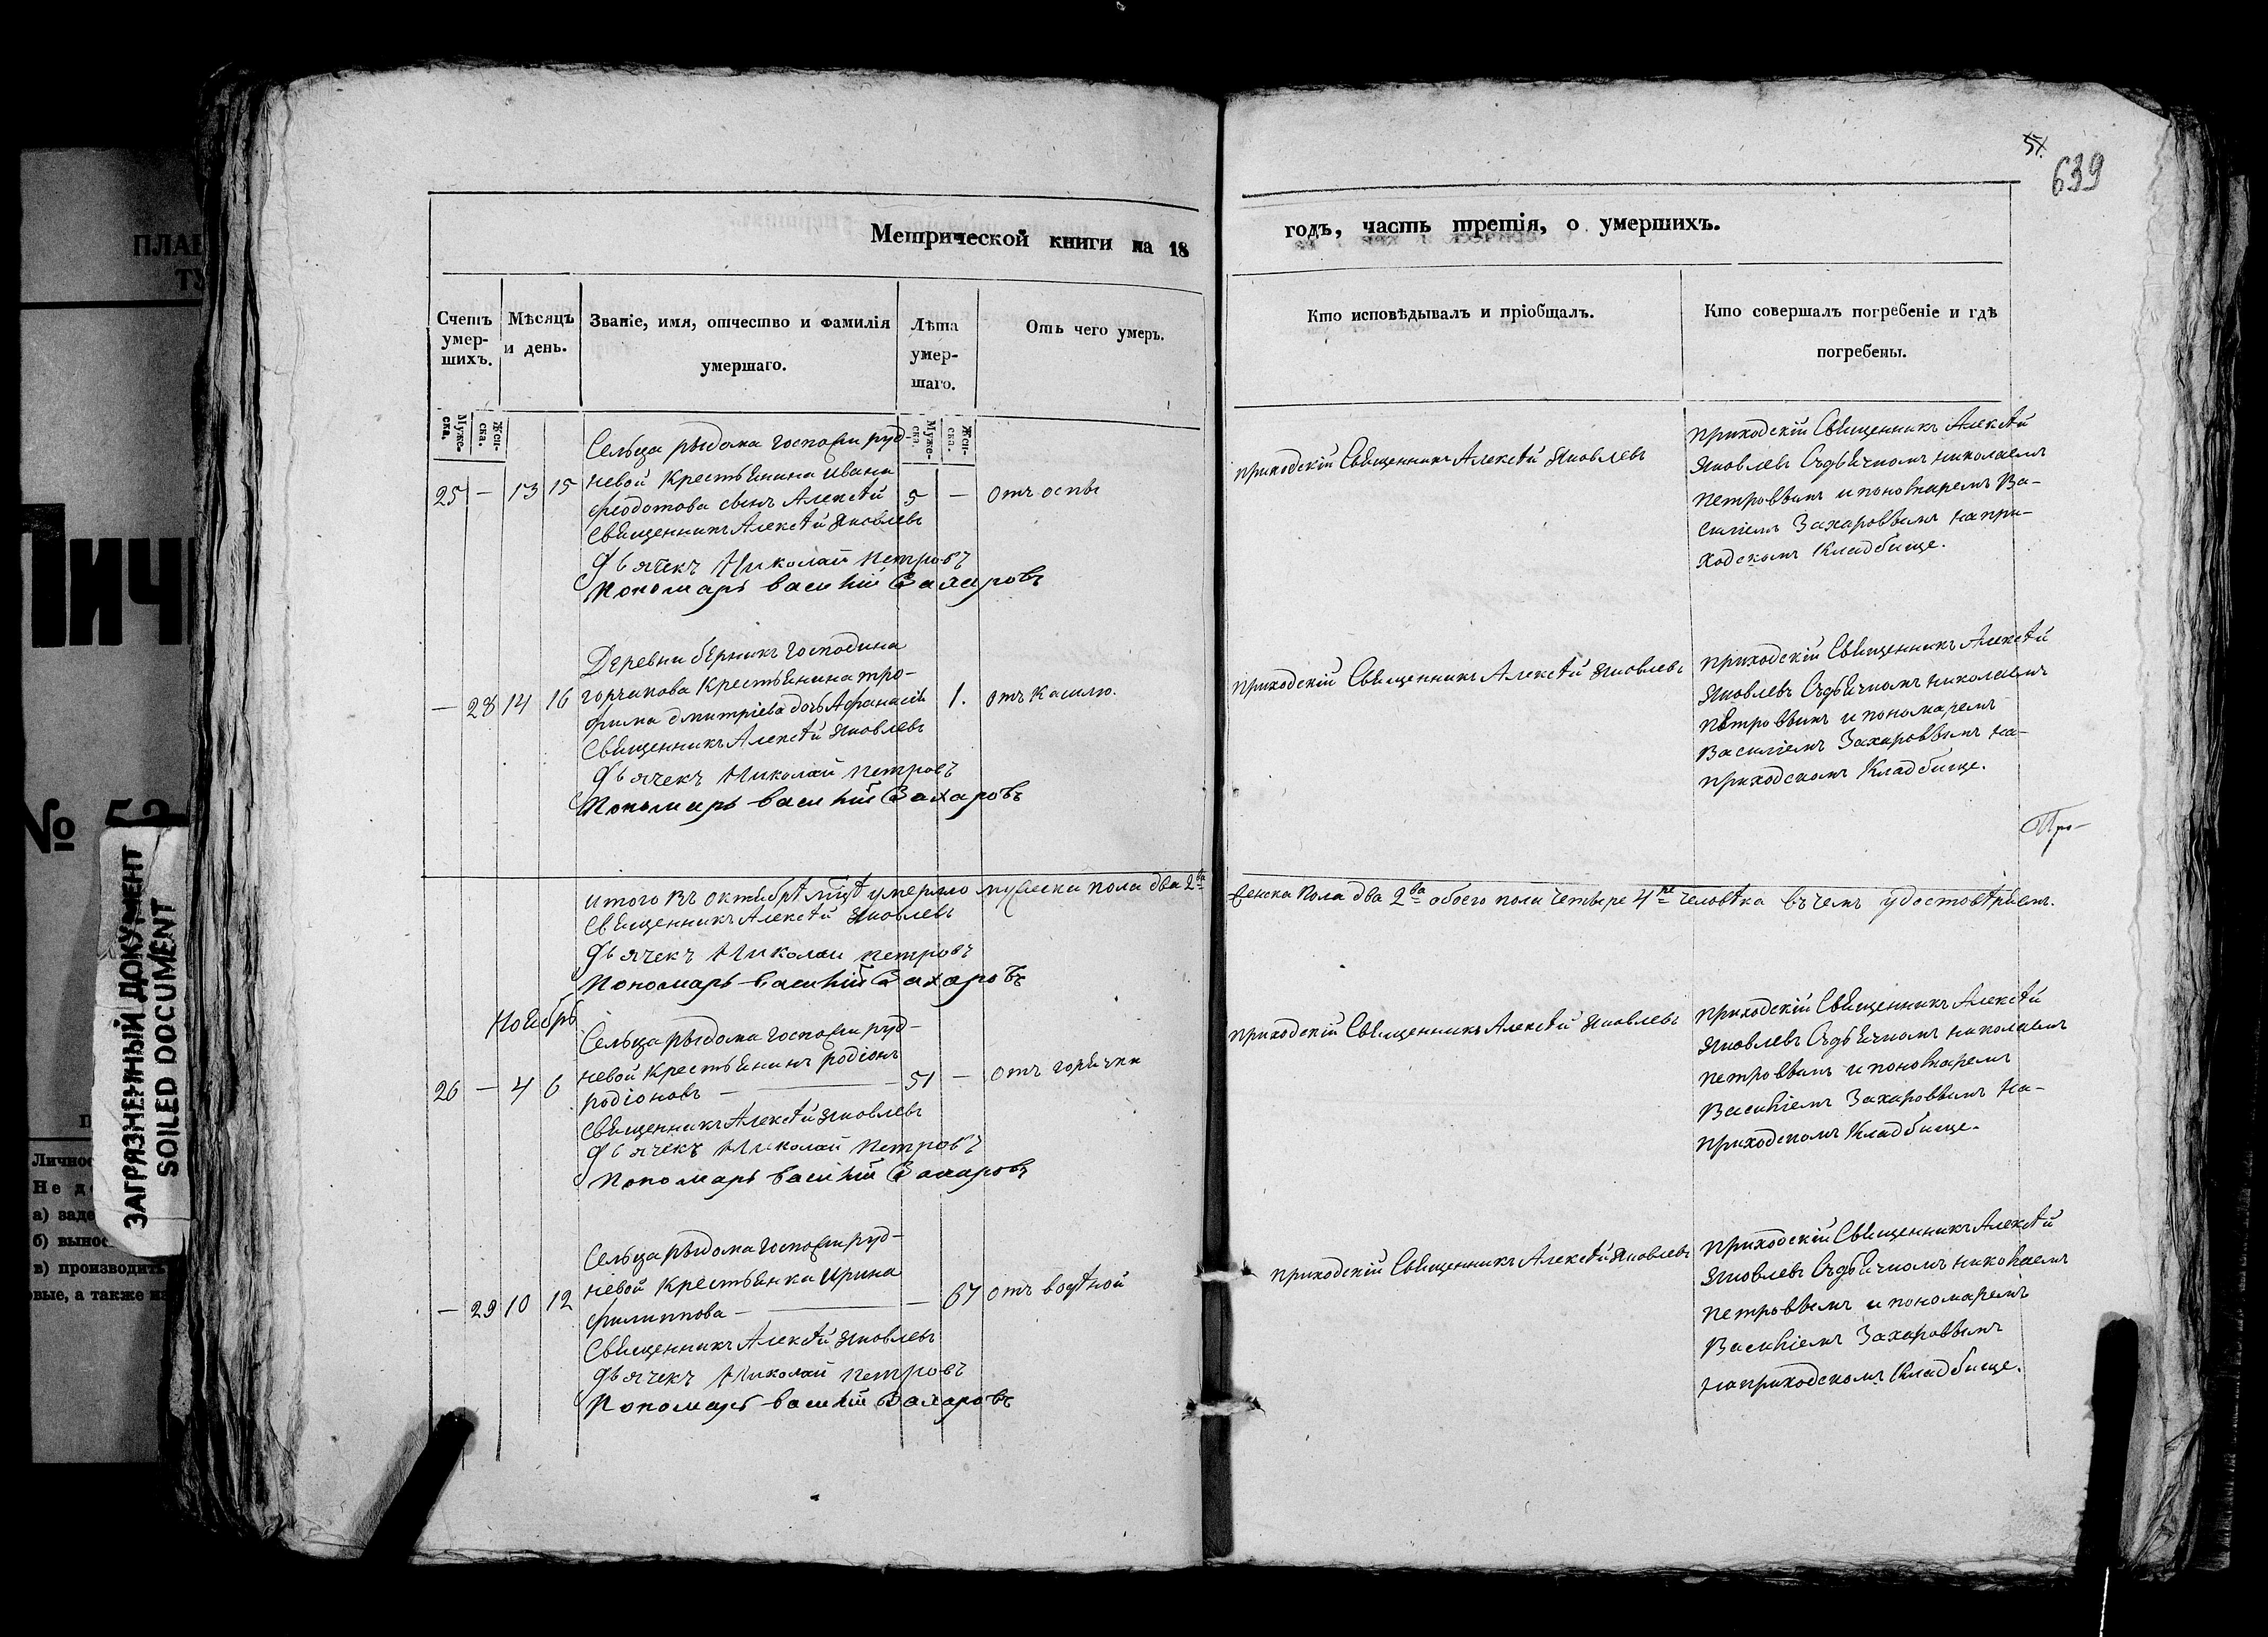 57.
639
Метрической книги на 18
годъ, часть третія, о умершихъ.
Счетъ умер-шихъ.
Мѣсяцъ и день.
Званіе, имя, отчество и фамилія умершаго.
Лѣта умер-шаго.
Отъ чего умеръ.
Кто исповѣдывалъ и пріобщалъ.
Кто совершалъ погребеніе и гдѣ погребены.
Муже-ска.
Жен-ска.
Муже-ска.
Жен-ска.
Сельца рыдома госпожи руд-
невой крестьянина ивана
25 — 13 15
федотова сынъ Алексѣй
5 —
отъ оспы
священникъ Алексѣй Яковлевъ
Дьячекъ Николай Петровъ
Пономарь Василій Захаровъ
приходскій Священникъ Алексѣй Яковлевъ
приходскій Священникъ Алексѣй
Яковлевъ съ дьячкомъ николаемъ
петровымъ и пономаремъ Ва-
силіемъ Захаровымъ на при-
ходскомъ кладбище.
Деревни господина
горчакова крестьянина тро-
— 28 14 16
фима дмитріева дочь Афанасія
1.
отъ кашлю.
Священникъ Алексѣй Яковлевъ
Дьячекъ Николай Петровъ
Пономарь Василій Захаровъ
приходскій Священникъ Алексѣй Яковлевъ
приходскій Священникъ Алексѣй
Яковлевъ съ дьячкомъ николаемъ
петровымъ и пономаремъ
Василіемъ Захаровымъ на-
приходскомъ кладбище.
Про-
итого въ октябрѣ мцѣ умерло мужеска пола два 2ва
женска пола два 2ва обоего пола четыре 4ре человѣка въ чемъ удостовѣряемъ.
Священникъ Алексѣй Яковлевъ
Дьячекъ Николай Петровъ
Пономарь Василій Захаровъ
Ноябрь
Сельца рыдома госпожи руд-
невой крестьянинъ родіонъ
26 — 4 6
родіоновъ —
51 —
отъ горячки
Священникъ Алексѣй Яковлевъ
Дьячекъ Николай Петровъ
Пономарь Василій Захаровъ
приходскій Священникъ Алексѣй Яковлевъ
приходскій Священникъ Алексѣй
Яковлевъ съ дьячкомъ николаемъ
петровымъ и пономаремъ
Василіемъ Захаровымъ на-
приходскомъ кладбище.
Сельца рыдома госпожи руд-
невой крестьянка Ирина
— 29 10 12
филиппова —
— 67
отъ водяной
Священникъ Алексѣй Яковлевъ
Дьячекъ Николай Петровъ
Пономарь Василій Захаровъ
приходскій Священникъ Алексѣй Яковлевъ
приходскій Священникъ Алексѣй
Яковлевъ съ дьячкомъ николаемъ
петровымъ и пономаремъ
Василіемъ Захаровымъ
на приходскомъ кладбище.
ЗАГРЯЗНЕННЫЙ ДОКУМЕНТ
SOILED DOCUMENT
ПЛАН
ТУ
ЛИЧ
№ 53
Личнос
Не д
а) заде
б) вынос
в) производить
овые, а также